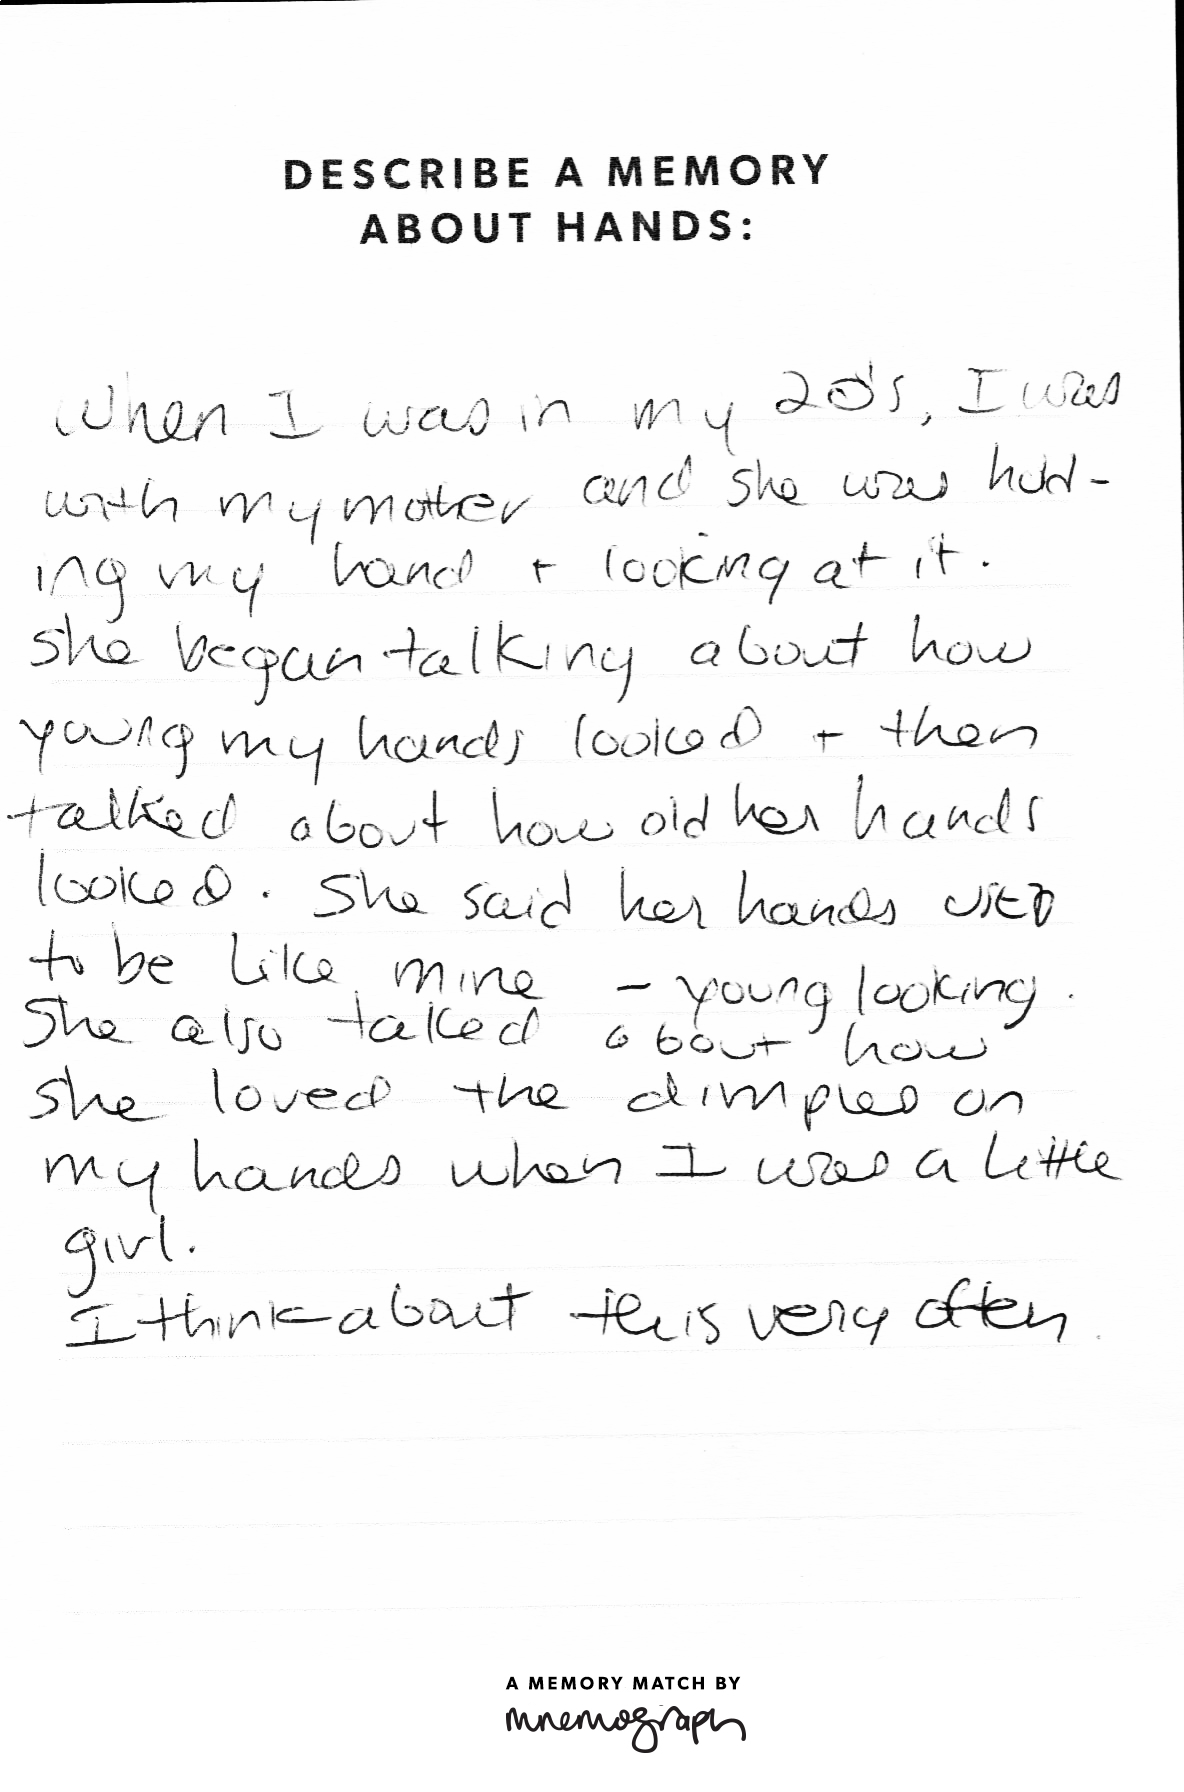 DESCRIBE A MEMORY
ABOUT HANDS:
When I was in my 20's, I was
with my mother and she was hold-
ing my hand + looking at it.
She began talking about how
young my hands looked + then
talked about how old her hands
looked. She said her hands used
to be like mine - young looking.
She also talked about how
she loved the dimples on
my hands when I was a little
girl.
I think about this very often.
A MEMORY MATCH BY
mnemograph